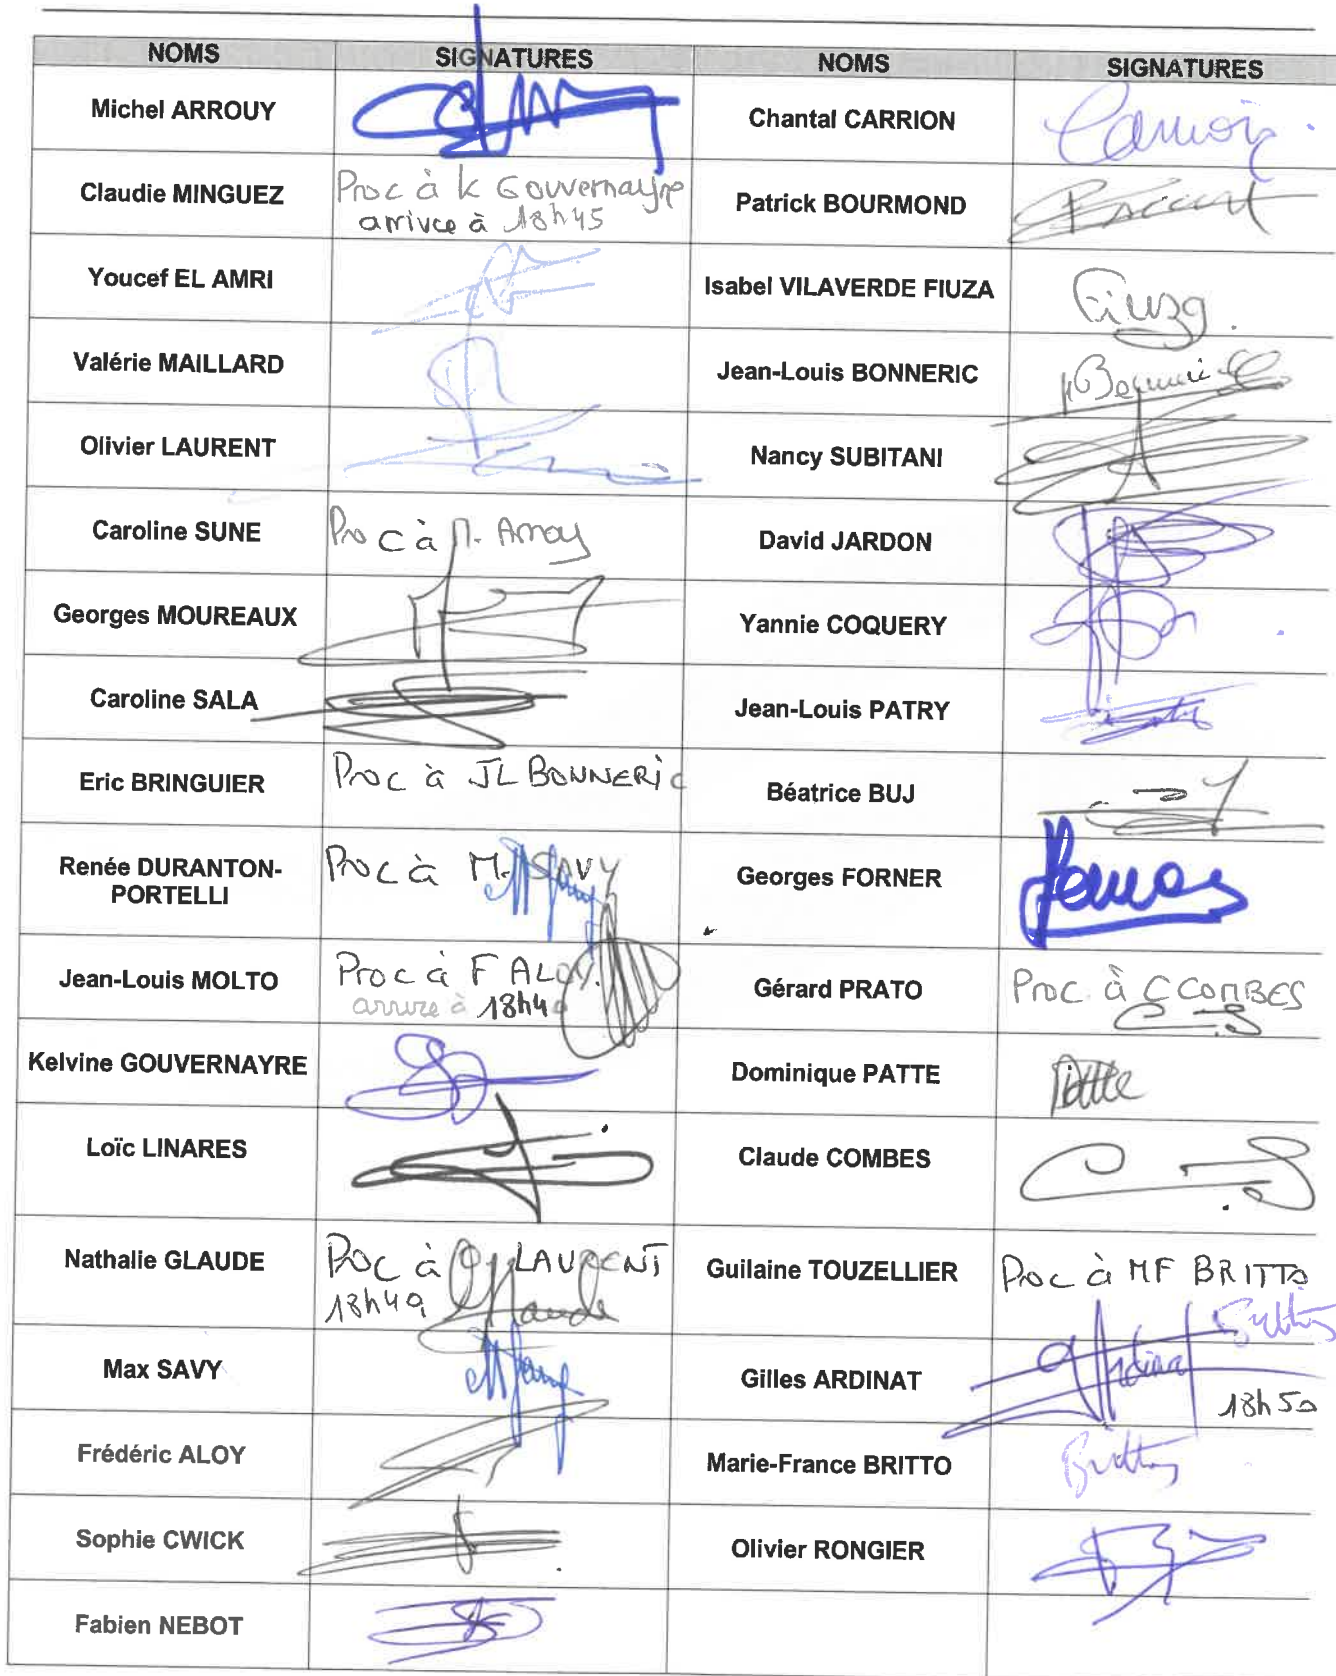 NOMS SIGNATURES NOMS SIGNATURES
Michel ARROUY Chantal CARRION
Claudie MINGUEZ Proc à K Gouvernayre Patrick BOURMOND
arrivée à 18h45
Youcef EL AMRI Isabel VILAVERDE FIUZA Fiuza
Valérie MAILLARD Jean-Louis BONNERIC Bonneric
Olivier LAURENT Nancy SUBITANI
Caroline SUNE Proc à M. Arroy David JARDON
Georges MOUREAUX Yannie COQUERY
Caroline SALA Jean-Louis PATRY
Eric BRINGUIER Proc à JL BONNERIC Béatrice BUJ
Renée DURANTON- Proc à M. SAVY Georges FORNER
PORTELLI
Jean-Louis MOLTO Proc à F ALOY. Gérard PRATO Proc à C COMBES
arrivée à 18h40
Kelvine GOUVERNAYRE Dominique PATTE Patte
Loïc LINARES Claude COMBES
Nathalie GLAUDE Proc à O LAURENT Guilaine TOUZELLIER Proc à MF BRITTO
18h49 Glaude Britto
Max SAVY Gilles ARDINAT Ardinat
18h50
Frédéric ALOY Marie-France BRITTO Britto
Sophie CWICK Olivier RONGIER
Fabien NEBOT